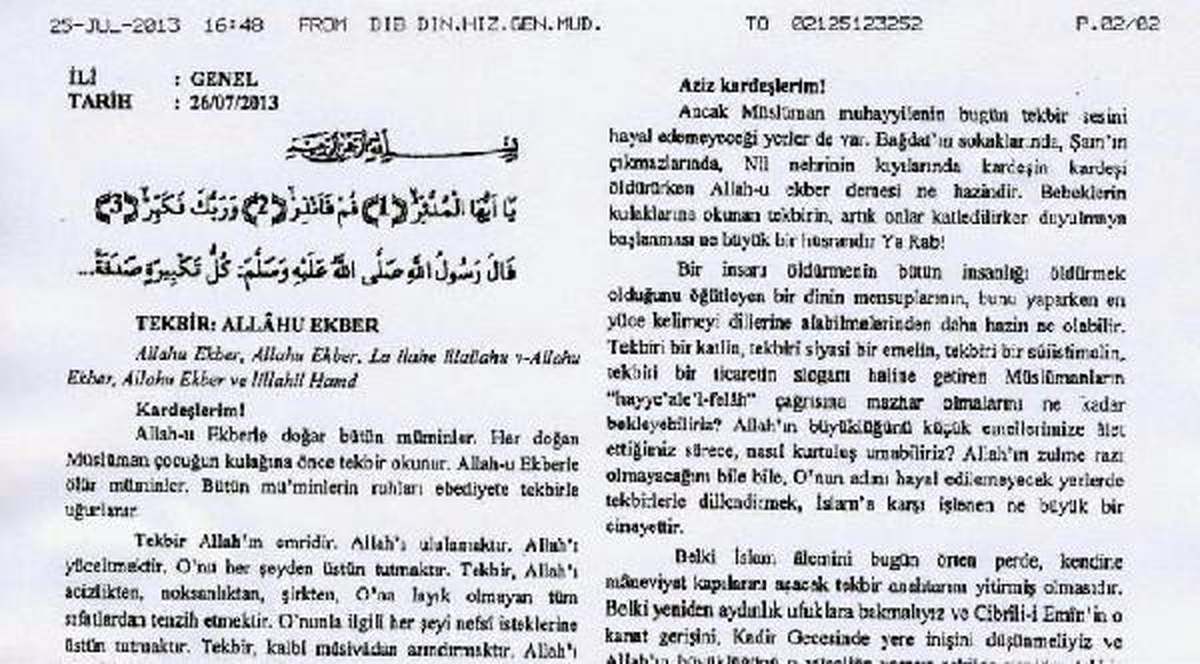 25-JUL-2013 16:48 FROM DIB DIN.HIZ.GEN.MUD. TO 02125123252 P.02/02
İLİ : GENEL
TARİH : 26/07/2013
يَا اَيُّهَا الْمُدَّثِّرُ (1) قُمْ فَاَنْذِرْ (2) وَرَبَّكَ فَكَبِّرْ (3)
قَالَ رَسُولُ اللهِ صَلَّى اللهُ عَلَيْهِ وَسَلَّمَ: كُلُّ تَكْبِيرَةٍ صَدَقَةٌ...
TEKBİR: ALLÂHU EKBER
Allahu Ekber, Allahu Ekber, La ilahe illallahu v-Allahu
Ekber, Allahu Ekber ve lillahil Hamd
Kardeşlerim!
Allah-u Ekberle doğar bütün müminler. Her doğan
Müslüman çocuğun kulağına önce tekbir okunur. Allah-u Ekberle
ölür müminler. Bütün mü'minlerin ruhları ebediyete tekbirle
uğurlanır.
Tekbir Allah'ın emridir. Allah'ı ululamaktır. Allah'ı
yüceltmektir. O'nu her şeyden üstün tutmaktır. Tekbir, Allah'ı
acizlikten, noksanlıktan, şirkten, O'na layık olmayan tüm
sıfatlardan tenzih etmektir. O'nunla ilgili her şeyi nefsî isteklerine
üstün tutmaktır. Tekbir, kalbi mâsivâdan arındırmaktır. Allah'ı
Aziz kardeşlerim!
Ancak Müslüman muhayyilenin bugün tekbir sesini
hayal edemeyeceği yerler de var. Bağdat'ın sokaklarında, Şam'ın
çıkmazlarında, Nil nehrinin kıyılarında kardeşin kardeşi
öldürürken Allah-u ekber demesi ne hazindir. Bebeklerin
kulaklarına okunan tekbirin, artık onlar katledilirken duyulmaya
başlanması ne büyük bir hüsrandır Ya Rab!
Bir insanı öldürmenin bütün insanlığı öldürmek
olduğunu öğütleyen bir dinin mensuplarının, bunu yaparken en
yüce kelimeyi dillerine alabilmelerinden daha hazin ne olabilir.
Tekbiri bir katlin, tekbiri siyasi bir emelin, tekbiri bir süiistimalin,
tekbiri bir ticaretin sloganı haline getiren Müslümanların
"hayye'ale'l-felâh" çağrısına mazhar olmalarını ne kadar
bekleyebiliriz? Allah'ın büyüklüğünü küçük emellerimize âlet
ettiğimiz sürece, nasıl kurtuluş umabiliriz? Allah'ın zulme razı
olmayacağını bile bile, O'nun adını hayal edilemeyecek yerlerde
tekbirlerle dillendirmek, İslam'a karşı işlenen ne büyük bir
cinayettir.
Belki İslam âlemini bugün örten perde, kendine
mâneviyat kapılarını açacak tekbir anahtarını yitirmiş olmasıdır.
Belki yeniden aydınlık ufuklara bakmalıyız ve Cibrîl-i Emîn'in o
kanat gerişini, Kadir Gecesinde yere inişini düşünmeliyiz ve
Allah'ın büyüklüğünü